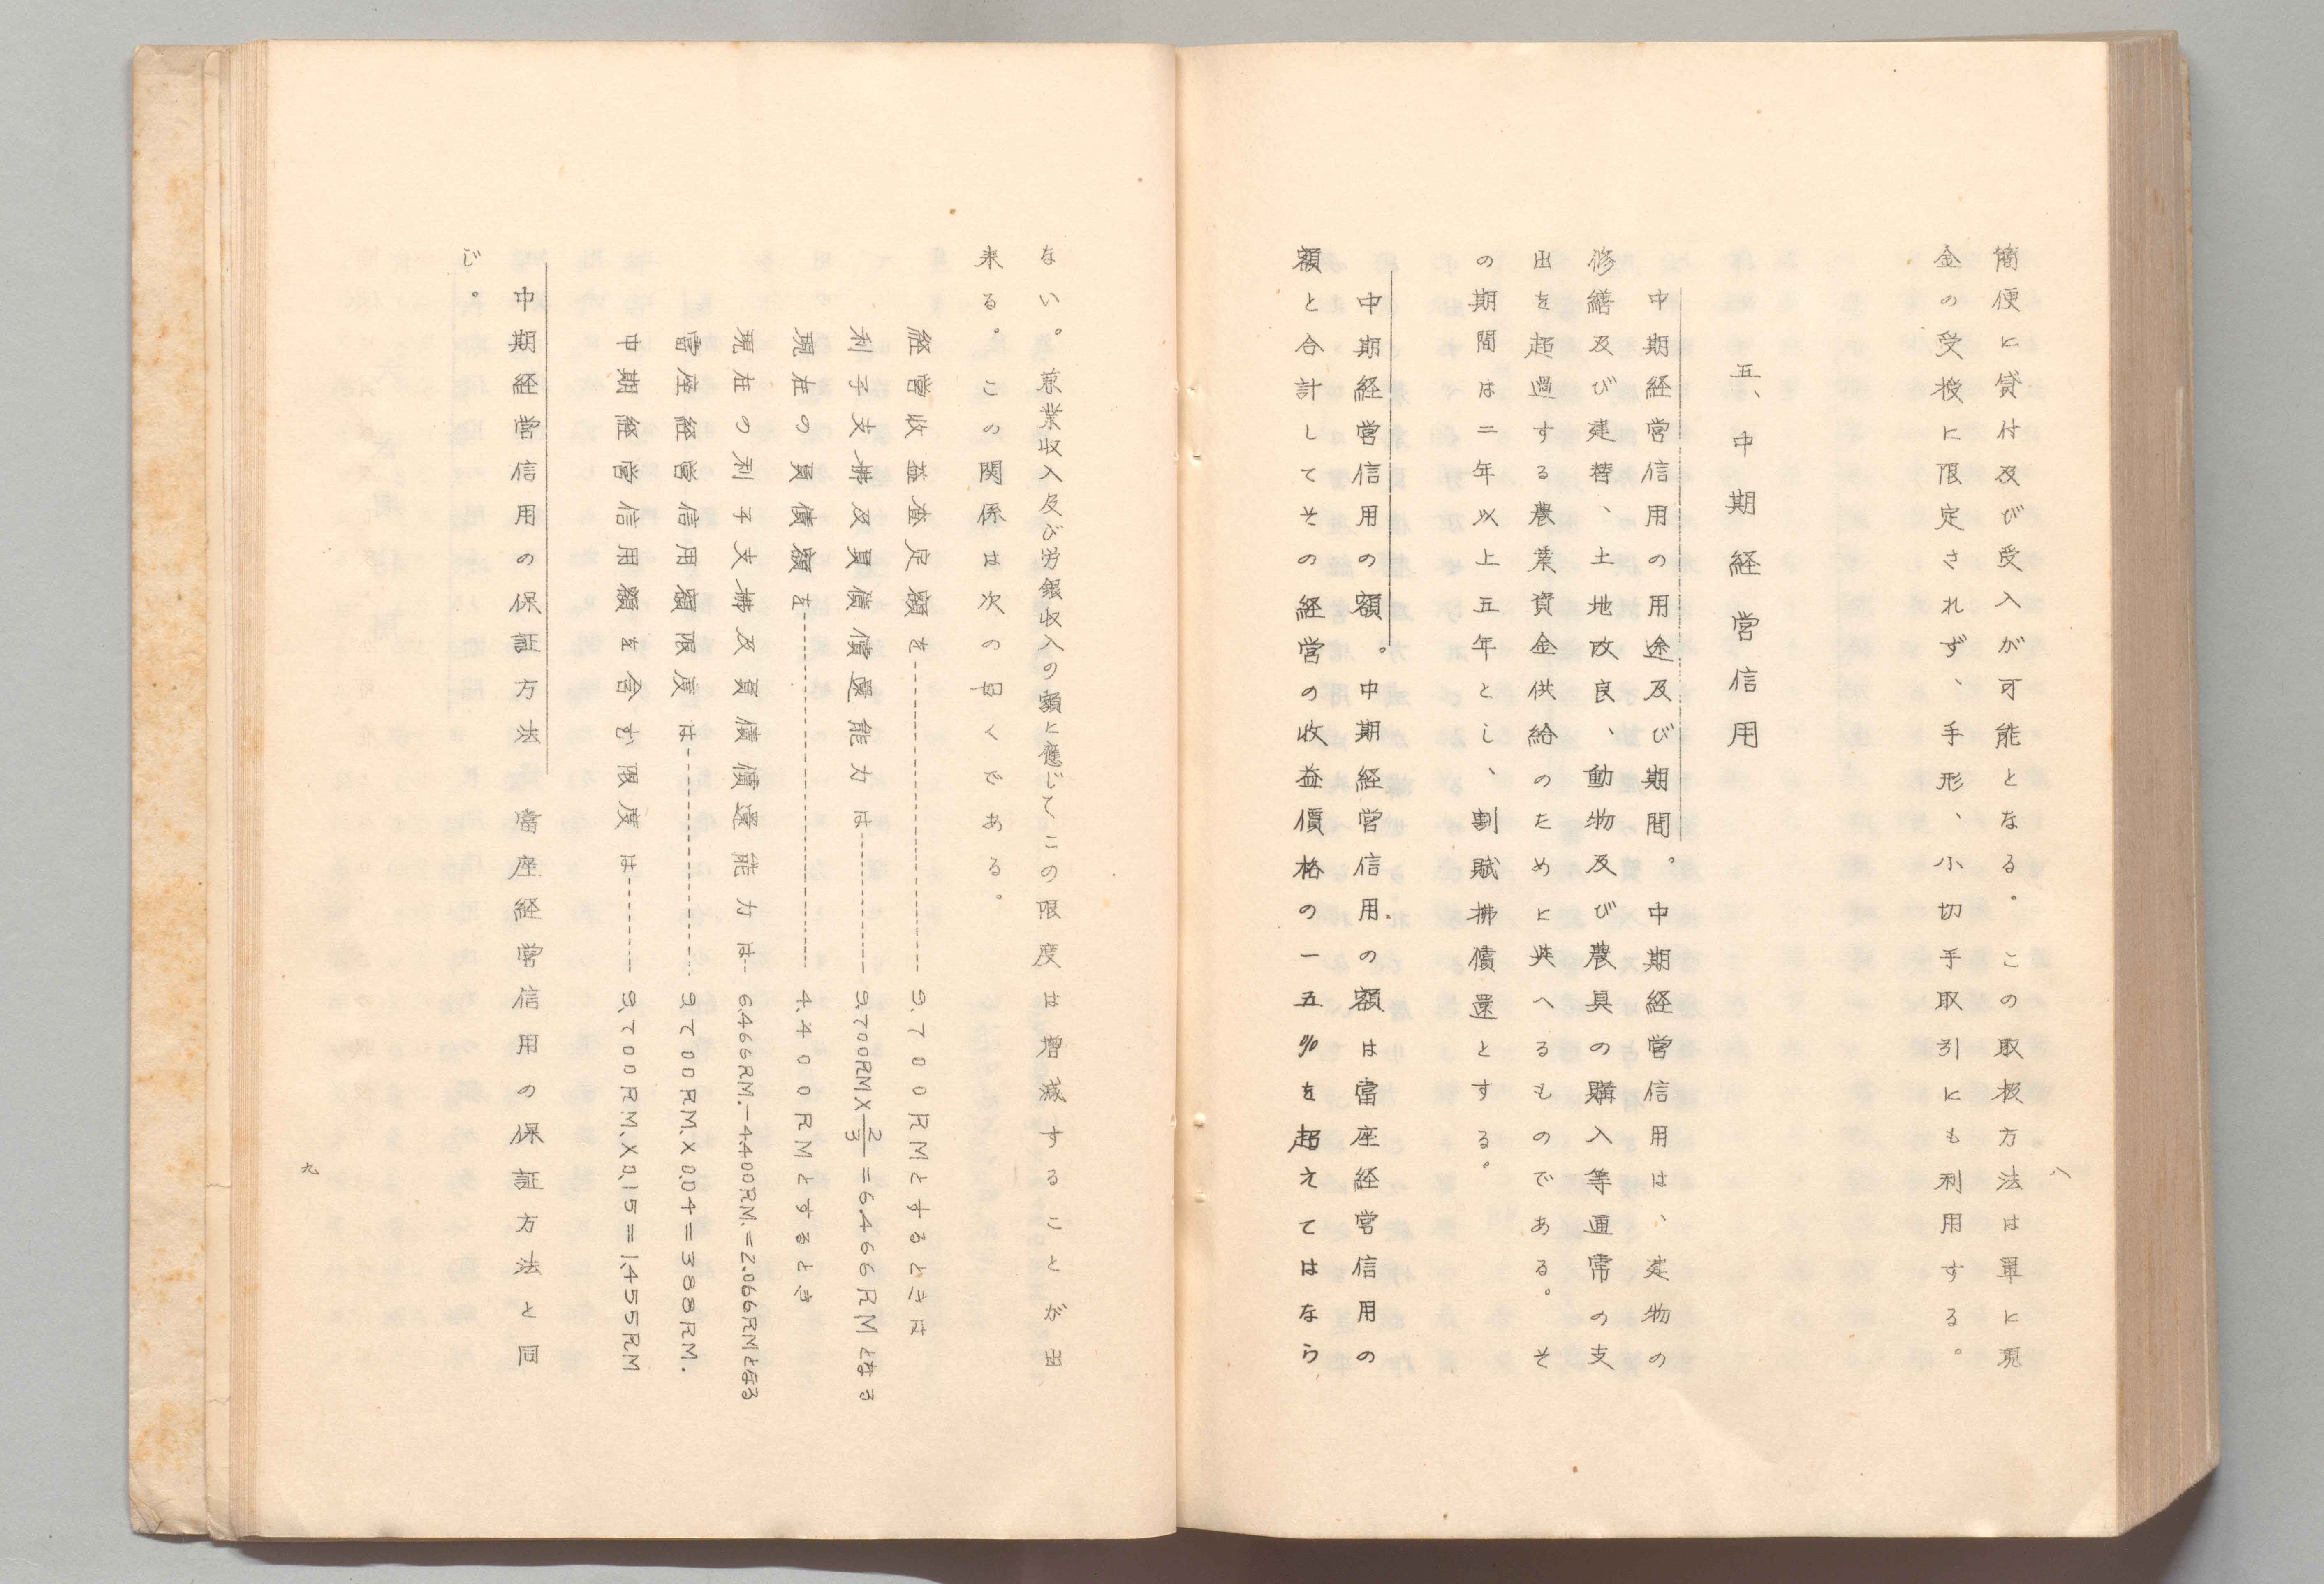 簡便に貸付及び受入が可能となる。この取扱方法は單に現
金の受授に限定されず、手形、小切手取引にも利用する。
五、中期経営信用
中期経営信用の用途及び期間。中期経営信用は、建物の
修繕及び建替、土地改良、動物及び農具の購入等通常の支
出を超過する農業資金供給のために與へるものである。そ
の期間は二年以上五年とし、割賦拂償還とする。
中期経営信用の額。中期経営信用の額は當座経営信用の
額と合計してその経営の收益價格の一五%を超えてはなら
八
ない。兼業収入及び労銀収入の額に應じてこの限度は増減することが出
来る。この関係は次の如くである。
経営收益査定額を----------9.700RMとするときは
利子支拂及負債償還能力は----------9.700RM×2/3=6.466RMとなる
現在の負債額を----------4.400RMとするとき
現在の利子支拂及負債償還能力は--6.466RM.-4.400RM.=2.066RMとなる
當座経営信用額限度は----------9.700RM.×0.04=388RM.
中期経営信用額を含む限度は----------9.700RM.×0.15=1.455RM
中期経営信用の保証方法 當座経営信用の保証方法と同
じ。
九